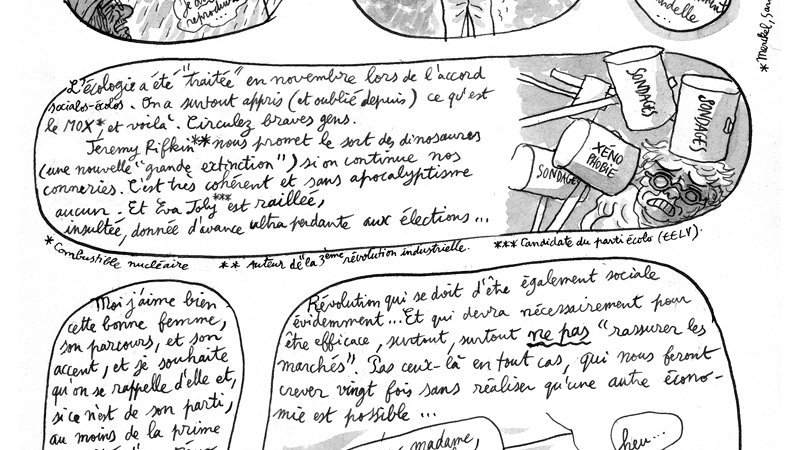 reproduire...
* Merkel,
L'écologie a été "traitée" en novembre lors de l'accord
socialos-écolos. On a surtout appris (et oublié depuis) ce qu'est
le MOX*, et voilà. Circulez braves gens.
Jeremy Rifkin** nous promet le sort des dinosaures
(une nouvelle "grande extinction") si on continue nos
conneries. C'est très cohérent et sans apocalyptisme
aucun. Et Eva Joly*** est raillée,
insultée, donnée d'avance ultra perdante aux élections...
SONDAGES
SONDAGES
XÉNO
PHOBIE
SONDAGE
* Combustible nucléaire
** Auteur de "la 3ème révolution industrielle.
*** Candidate du parti écolo (EELV).
Moi j'aime bien
cette bonne femme,
son parcours, et son
accent, et je souhaite
qu'on se rappelle d'elle et,
si ce n'est de son parti,
au moins de la prime
Révolution qui se doit d'être également sociale
évidemment... Et qui devra nécessairement pour
être efficace, surtout, surtout ne pas "rassurer les
marchés". Pas ceux-là en tout cas, qui nous feront
crever vingt fois sans réaliser qu'une autre écono-
mie est possible...
madame,
heu...